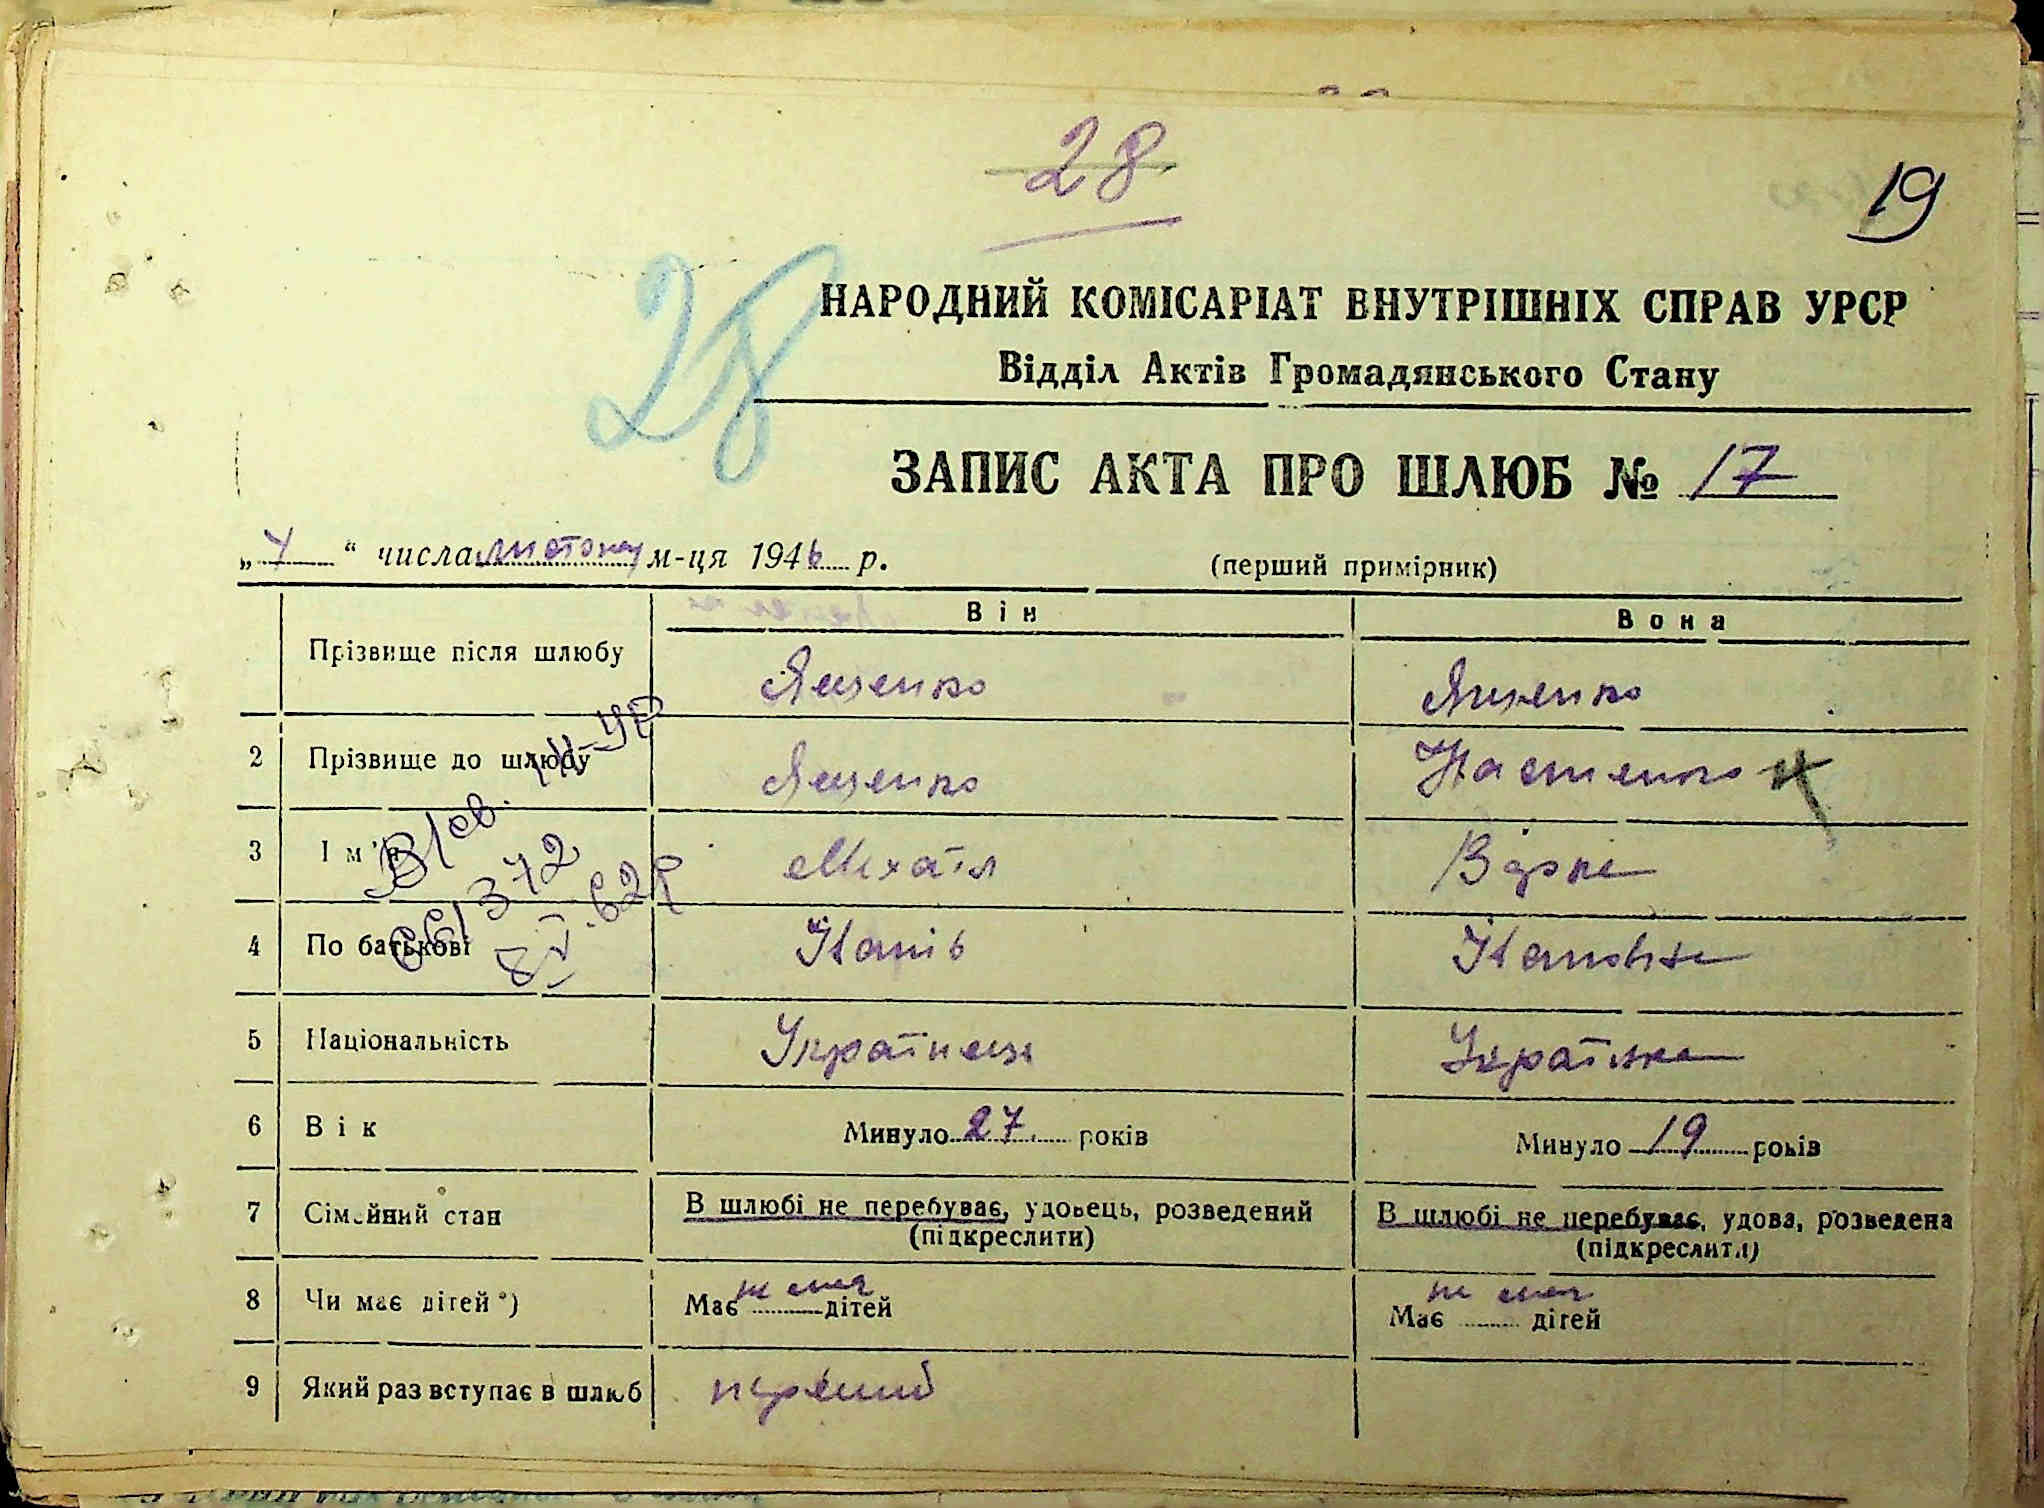 28
19
28
НАРОДНИЙ КОМІСАРІАТ ВНУТРІШНІХ СПРАВ УРСР
Відділ Актів Громадянського Стану
ЗАПИС АКТА ПРО ШЛЮБ № 17
„ “ числа лютого м-ця 1946 р. (перший примірник)
Він Вона
Прізвище після шлюбу Ященко Ященко
2 Прізвище до шлюбу Ященко
3 Ім'я Михаїл
4 По батькові
5 Національність Українець Українка
6 Вік Минуло 27 років Минуло 19 років
7 Сімейний стан В шлюбі не перебуває, удовець, розведений (підкреслити) В шлюбі не перебуває, удова, розведена (підкреслити)
8 Чи має дітей *) Має не має дітей Має не має дітей
9 Який раз вступає в шлюб перший